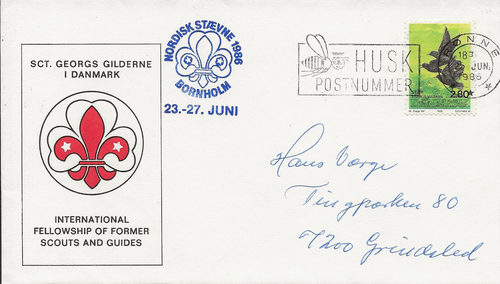 SCT. GEORGS GILDERNE
I DANMARK
INTERNATIONAL
FELLOWSHIP OF FORMER
SCOUTS AND GUIDES
NORDISK STÆVNE 1986
BORNHOLM
23.-27. JUNI
HUSK
POSTNUMMER
RØNNE
JUN.
1986
2.80
Hans Værge
Tingparken 80
7200 Grindsted